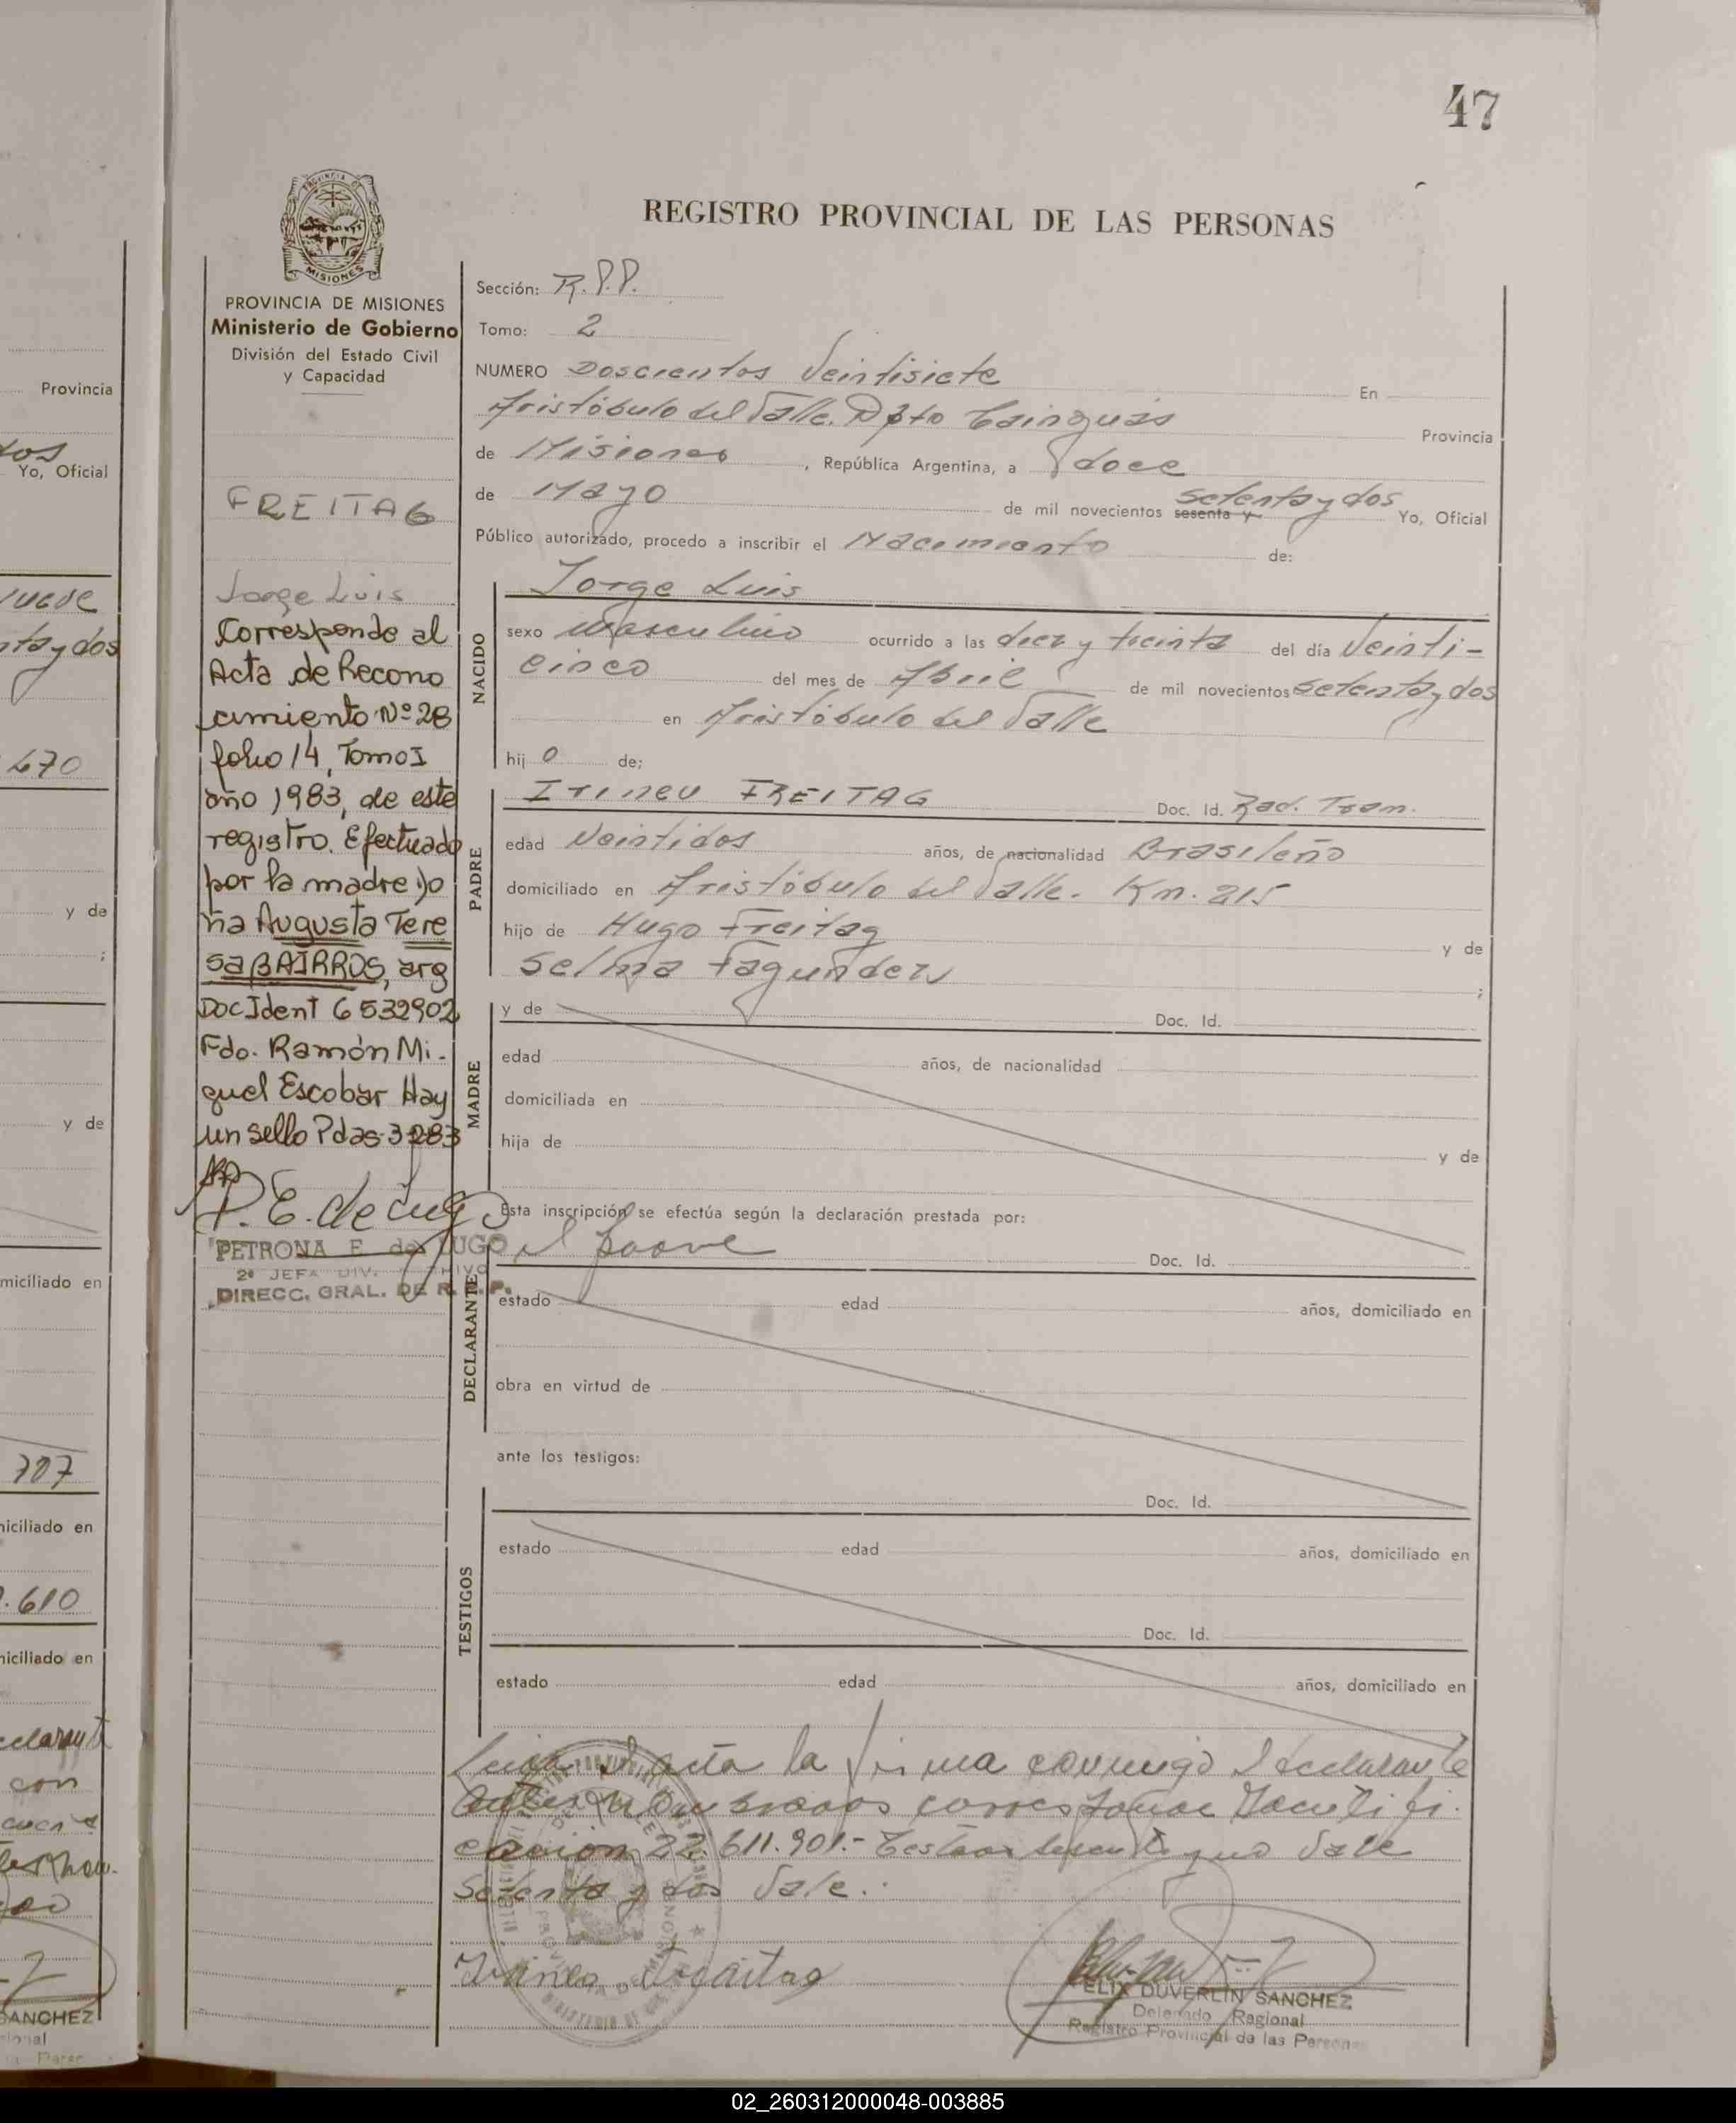 47
REGISTRO PROVINCIAL DE LAS PERSONAS
MISIONES
PROVINCIA DE MISIONES
Ministerio de Gobierno
División del Estado Civil
y Capacidad
FREITAG
Jorge Luis
Corresponde al
Acta de Recono
cimiento Nº 28
folio 14, Tomo I
año 1983, de este
registro. Efectuado
por la madre
Augusta Tere
sa BAIRROS, arg
Doc Ident 6532902
Fdo. Ramón Mi-
guel Escobar Hay
un sello Pdas-3
P. E. de Lugo
PETRONA E. de LUGO
2º JEFA DIV. ARCHIVO
DIRECC. GRAL. DE R. P. P.
Sección: R.P.P.
Tomo: 2
NUMERO Doscientos Veintisiete En
Aristóbulo del Valle. Dpto Cainguás Provincia
de Misiones, República Argentina, a doce
de Mayo de mil novecientos sesenta y setenta y dos Yo, Oficial
Público autorizado, procedo a inscribir el Nacimiento de:
NACIDO
Jorge Luis
sexo masculino ocurrido a las diez y treinta del día Veinti-
cinco del mes de Abril de mil novecientos setenta y dos
en Aristóbulo del Valle
hijo de;
PADRE
Irineu FREITAG Doc. Id. Rad. Tram.
edad Veintidos años, de nacionalidad Brasileño
domiciliado en Aristóbulo del Valle. Km. 215
hijo de Hugo Freitag y de
Selma Fagundez ;
MADRE
y de Doc. Id.
edad años, de nacionalidad
domiciliada en
hija de y de
Esta inscripción se efectúa según la declaración prestada por:
DECLARANTE
el Padre Doc. Id.
estado edad años, domiciliado en
obra en virtud de
ante los testigos:
TESTIGOS
Doc. Id.
estado edad años, domiciliado en
Doc. Id.
estado edad años, domiciliado en
acta la firma conmigo el declarante
corresponde Identifi-
cación 22.611.901.- Testado sesenta y no Vale
Setenta y dos Vale.
Irineu Freitag
FELIX DUVERLIN SANCHEZ
Delegado Regional
Registro Provincial de las Personas
Provincia
Yo, Oficial
ta y dos
470
y de
;
y de
miciliado en
707
niciliado en
.610
niciliado en
con
SANCHEZ
02_260312000048-003885